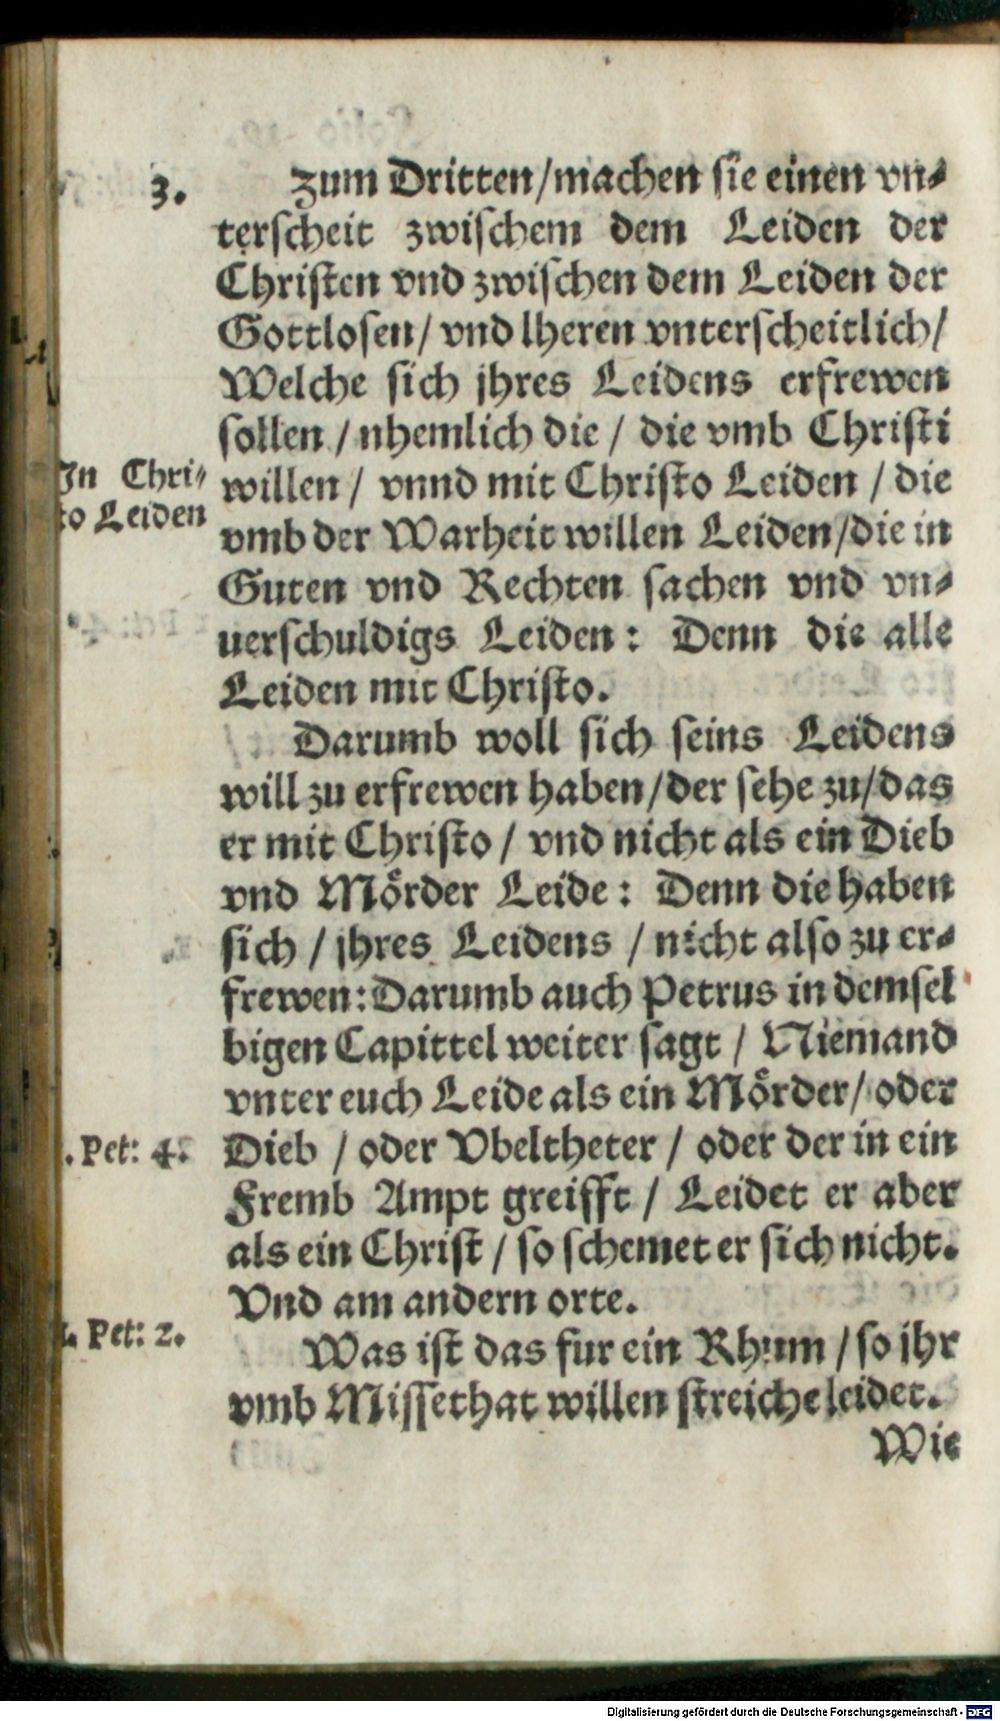 3. Zum Dritten/machen sie einen vn-
terscheit zwischem dem Leiden der
Christen vnd zwischen dem Leiden der
Gottlosen/ vnd lheren vnterscheitlich/
Welche sich jhres Leidens erfrewen
sollen / nhemlich die / die vmb Christi
In Chri-
to Leiden
willen / vnnd mit Christo Leiden / die
vmb der Warheit willen Leiden/die in
Guten vnd Rechten sachen vnd vn-
uerschuldigs Leiden: Denn die alle
Leiden mit Christo.
Darumb woll sich seins Leidens
will zu erfrewen haben/der sehe zu/das
er mit Christo / vnd nicht als ein Dieb
vnd Mörder Leide: Denn die haben
sich / jhres Leidens / nicht also zu er-
frewen: Darumb auch Petrus in demsel
bigen Capittel weiter sagt / Niemand
vnter euch Leide als ein Mörder/ oder
. Pet: 4.
Dieb / oder Vbeltheter / oder der in ein
Fremb Ampt greifft / Leidet er aber
als ein Christ / so schemet er sich nicht.
Vnd am andern orte.
1. Pet: 2.
Was ist das fur ein Rhum / so jhr
vmb Missethat willen streiche leidet.
Wie
Digitalisierung gefördert durch die Deutsche Forschungsgemeinschaft - DFG